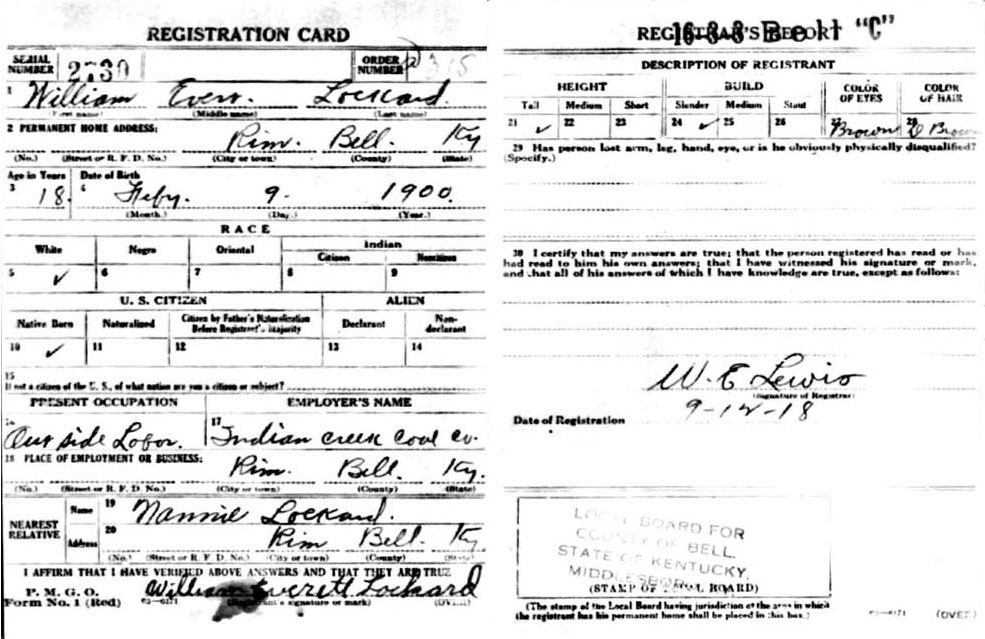 REGISTRATION CARD
SERIAL NUMBER 2730 ORDER NUMBER
1 William Everr. Lockard.
(First name) (Middle name) (Last name)
2 PERMANENT HOME ADDRESS:
Rim. Bell. Ky
(No.) (Street or R. F. D. No.) (City or town) (County) (State)
Age in Years Date of Birth
3 18. 4 Feby. 9. 1900.
(Month.) (Day.) (Year.)
RACE
White Negro Oriental Indian
Citizen Noncitizen
5 ✓ 6 7 8 9
U. S. CITIZEN ALIEN
Native Born Naturalized Citizen by Father's Naturalization Before Registrant's Majority Declarant Non-declarant
10 ✓ 11 12 13 14
15
If not a citizen of the U. S., of what nation are you a citizen or subject?
PRESENT OCCUPATION EMPLOYER'S NAME
16 Out side Labor. 17 Indian creek coal co.
18 PLACE OF EMPLOYMENT OR BUSINESS:
Rim. Bell. Ky.
(No.) (Street or R. F. D. No.) (City or town) (County) (State)
NEAREST RELATIVE Name 19 Nannie Lockard.
Address 20 Rim Bell. Ky
(No.) (Street or R. F. D. No.) (City or town) (County) (State)
I AFFIRM THAT I HAVE VERIFIED ABOVE ANSWERS AND THAT THEY ARE TRUE
P. M. G. O.
Form No. 1 (Red) 03—6171 William Everett Lockard
(Registrant's signature or mark) (OVER)
REGISTRAR'S REPORT
16-3-3 "C"
DESCRIPTION OF REGISTRANT
HEIGHT BUILD COLOR OF EYES COLOR OF HAIR
Tall Medium Short Slender Medium Stout
21 ✓ 22 23 24 ✓ 25 26 27 Brown 28 D Brow
29 Has person lost arm, leg, hand, eye, or is he obviously physically disqualified?
(Specify.)
30 I certify that my answers are true; that the person registered has read or has
had read to him his own answers; that I have witnessed his signature or mark,
and that all of his answers of which I have knowledge are true, except as follows:
W. E Lewis
(Signature of Registrar)
Date of Registration 9-12-18
LOCAL BOARD FOR
COUNTY OF BELL,
STATE OF KENTUCKY,
MIDDLESBORO
(STAMP OF LOCAL BOARD)
(The stamp of the Local Board having jurisdiction of the area in which
the registrant has his permanent home shall be placed in this box.)
03—6171 (OVER)